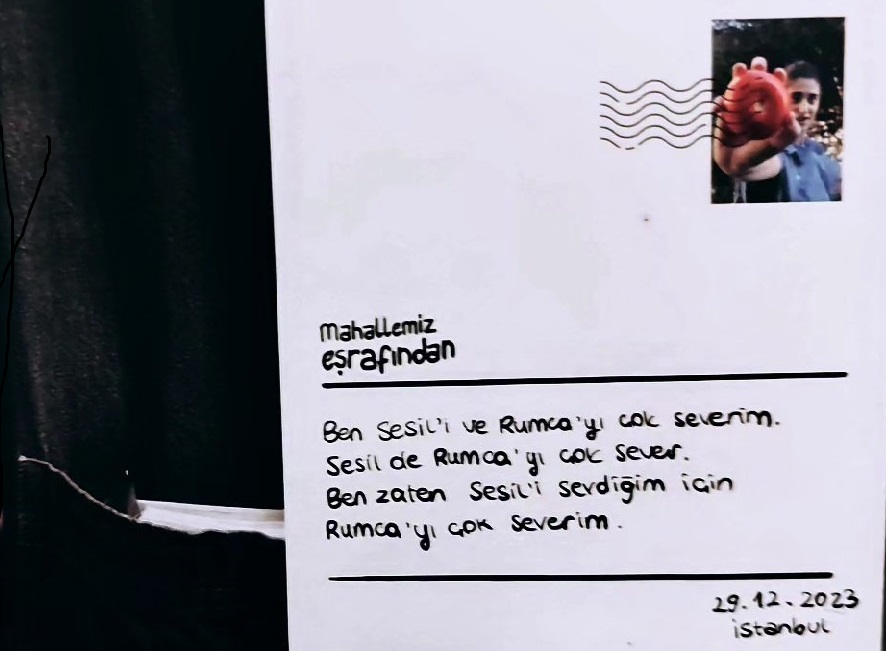 Mahallemiz
eşrafından
Ben Sesil'i ve Rumca'yı çok severim.
Sesil de Rumca'yı çok sever.
Ben zaten Sesil'i sevdiğim için
Rumca'yı çok severim.
29.12.2023
istanbul